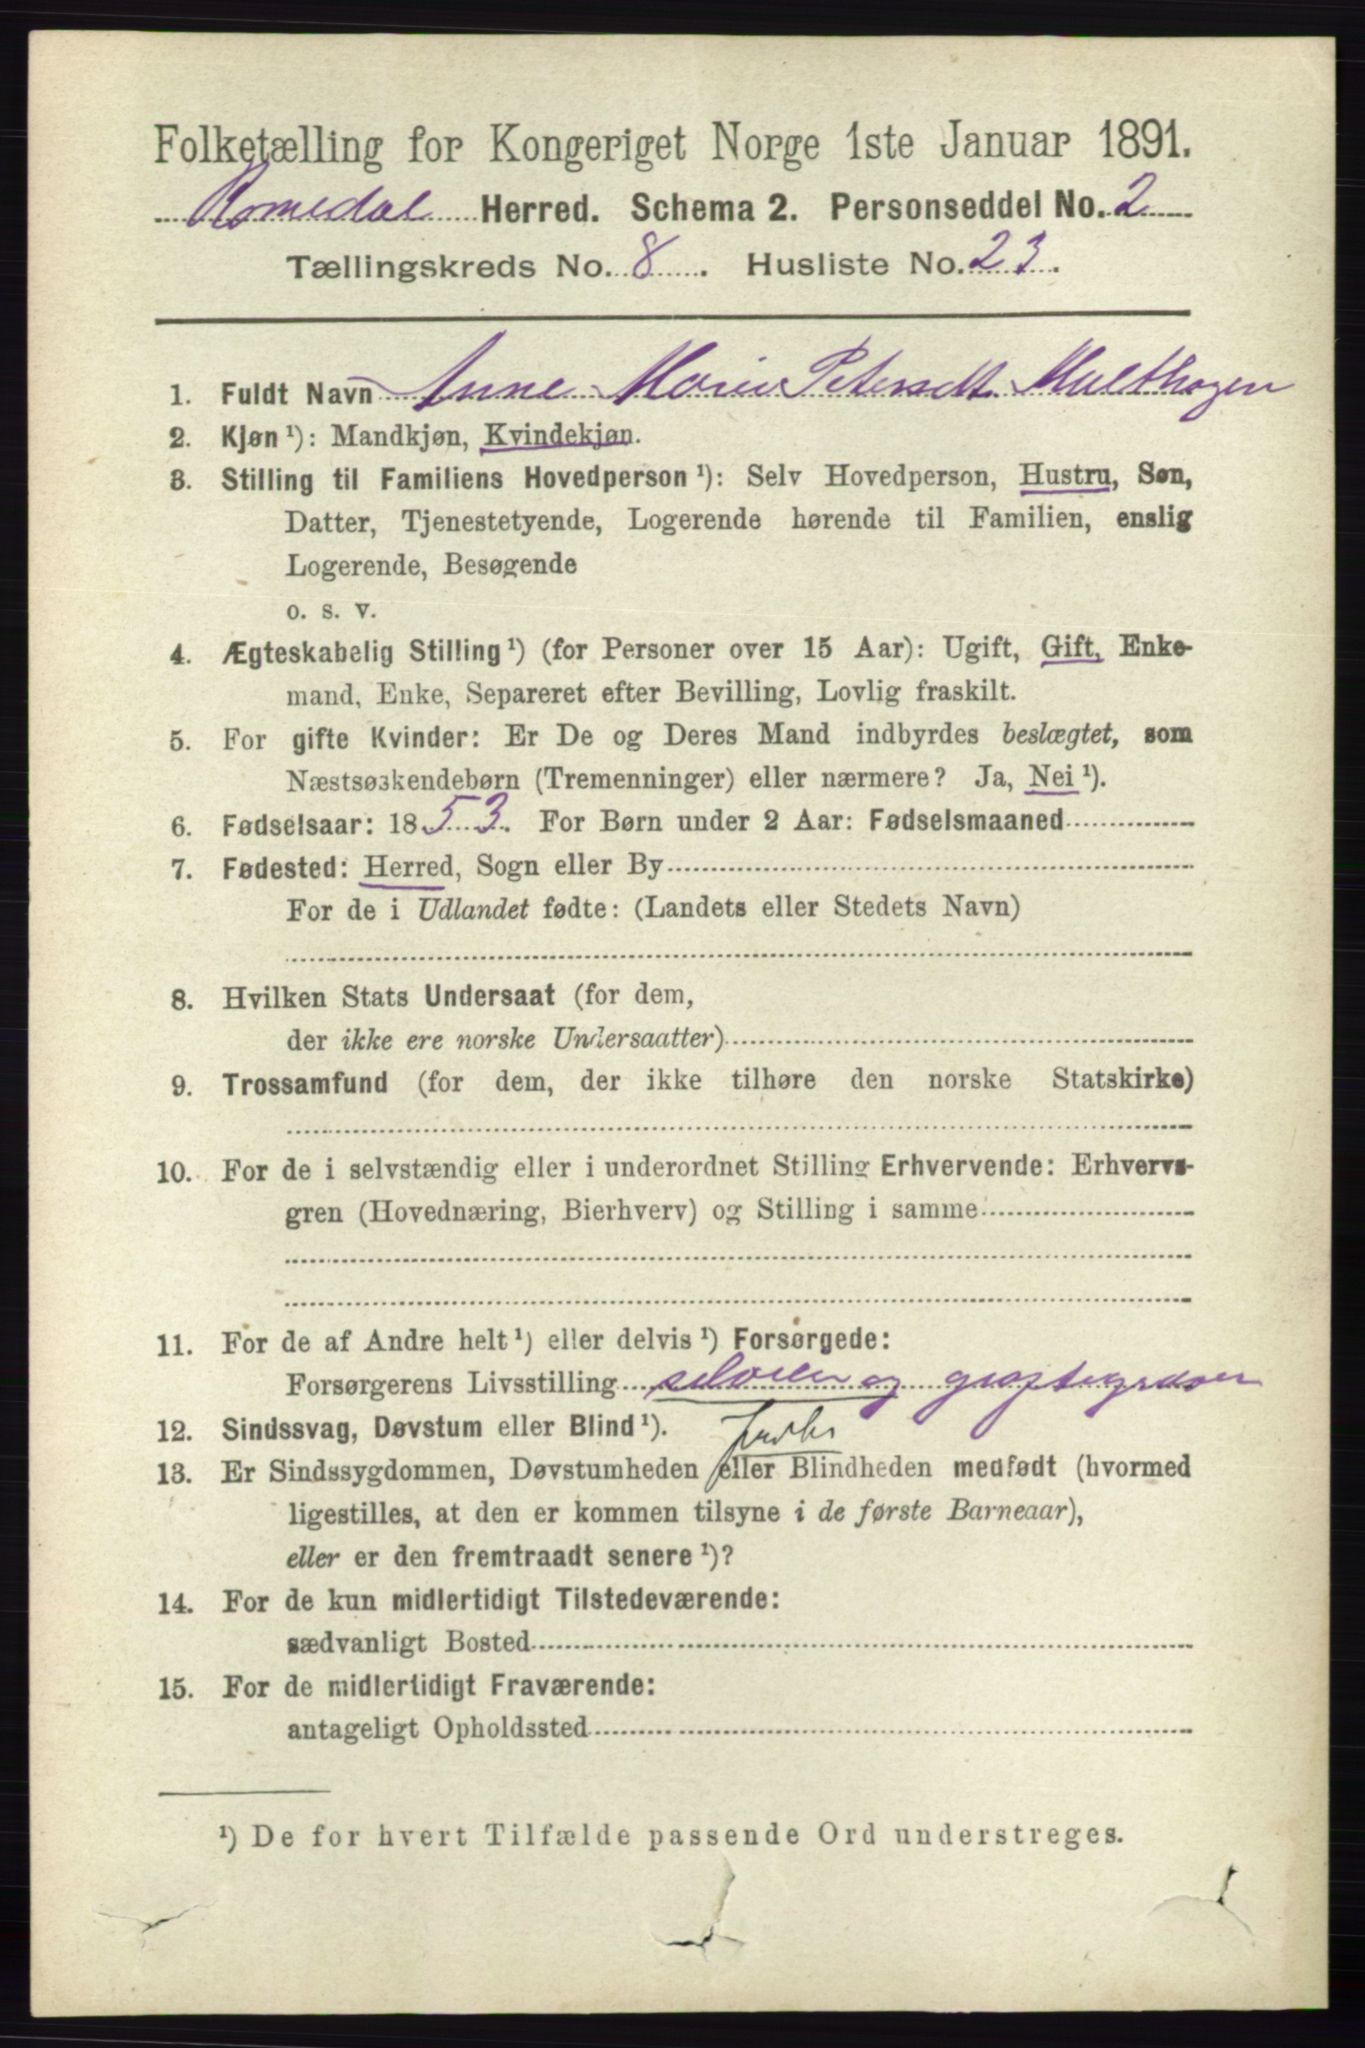 Folketælling for Kongeriget Norge 1ste Januar 1891.
Romedal Herred. Schema 2. Personseddel No. 2
Tællingskreds No. 8. Husliste No. 23.
1. Fuldt Navn Anne Marie Petersdt. Multhagen
2. Kjøn ¹): Mandkjøn, Kvindekjøn.
3. Stilling til Familiens Hovedperson ¹): Selv Hovedperson, Hustru, Søn,
Datter, Tjenestetyende, Logerende hørende til Familien, enslig
Logerende, Besøgende
o. s. v.
4. Ægteskabelig Stilling ¹) (for Personer over 15 Aar): Ugift, Gift, Enke-
mand, Enke, Separeret efter Bevilling, Lovlig fraskilt.
5. For gifte Kvinder: Er De og Deres Mand indbyrdes beslægtet, som
Næstsøskendebørn (Tremenninger) eller nærmere? Ja, Nei ¹).
6. Fødselsaar: 1853. For Børn under 2 Aar: Fødselsmaaned
7. Fødested: Herred, Sogn eller By
For de i Udlandet fødte: (Landets eller Stedets Navn)
8. Hvilken Stats Undersaat (for dem,
der ikke ere norske Undersaatter)
9. Trossamfund (for dem, der ikke tilhøre den norske Statskirke)
10. For de i selvstændig eller i underordnet Stilling Erhvervende: Erhvervs-
gren (Hovednæring, Bierhverv) og Stilling i samme
11. For de af Andre helt ¹) eller delvis ¹) Forsørgede:
Forsørgerens Livsstilling selveier og grøftegraver
12. Sindssvag, Døvstum eller Blind ¹).
13. Er Sindssygdommen, Døvstumheden eller Blindheden medfødt (hvormed
ligestilles, at den er kommen tilsyne i de første Barneaar),
eller er den fremtraadt senere ¹)?
14. For de kun midlertidigt Tilstedeværende:
sædvanligt Bosted
15. For de midlertidigt Fraværende:
antageligt Opholdssted
¹) De for hvert Tilfælde passende Ord understreges.